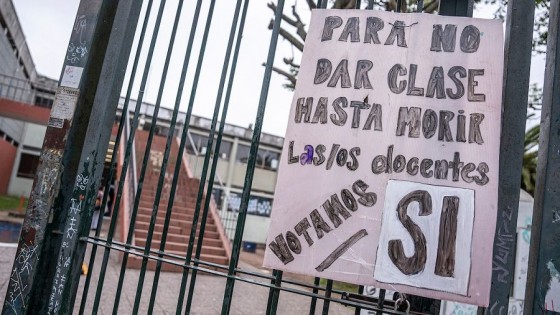 PARA NO
DAR CLASE
HASTA MORIR
LAS/OS docentes
VOTAMOS
SI